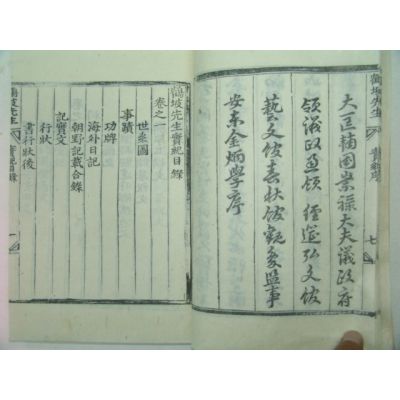 大匡輔國崇祿大夫議政府
領議政兼領 經筵弘文館
藝文館春秋館觀象監事
安東金炳學序
坡先生 實紀序 七
坡先生實紀目錄
卷之一
世系圖
事蹟
功牌
海外日記
朝野記載合錄
記實文
行狀
書行狀後
坡先生 實紀目錄 一